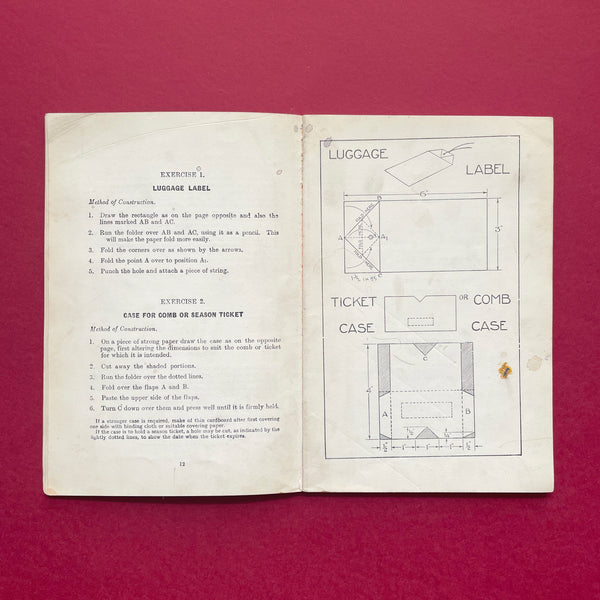 EXERCISE 1.
LUGGAGE LABEL
Method of Construction.
1. Draw the rectangle as on the page opposite and also the
lines marked AB and AC.
2. Run the folder over AB and AC, using it as a pencil. This
will make the paper fold more easily.
3. Fold the corners over as shown by the arrows.
4. Fold the point A over to position A₁.
5. Punch the hole and attach a piece of string.
EXERCISE 2.
CASE FOR COMB OR SEASON TICKET
Method of Construction.
1. On a piece of strong paper draw the case as on the opposite
page, first altering the dimensions to suit the comb or ticket
for which it is intended.
2. Cut away the shaded portions.
3. Run the folder over the dotted lines.
4. Fold over the flaps A and B.
5. Paste the upper side of the flaps.
6. Turn C down over them and press well until it is firmly held.
If a stronger case is required, make of thin cardboard after first covering
one side with binding cloth or suitable covering paper.
If the case is to hold a season ticket, a hole may be cut, as indicated by the
lightly dotted lines, to show the date when the ticket expires.
12
LUGGAGE
LABEL
6"
B
A
A₁
3"
C
TICKET OR COMB
CASE CASE
C
4"
A
B
½" 1" 1" 1" ½"